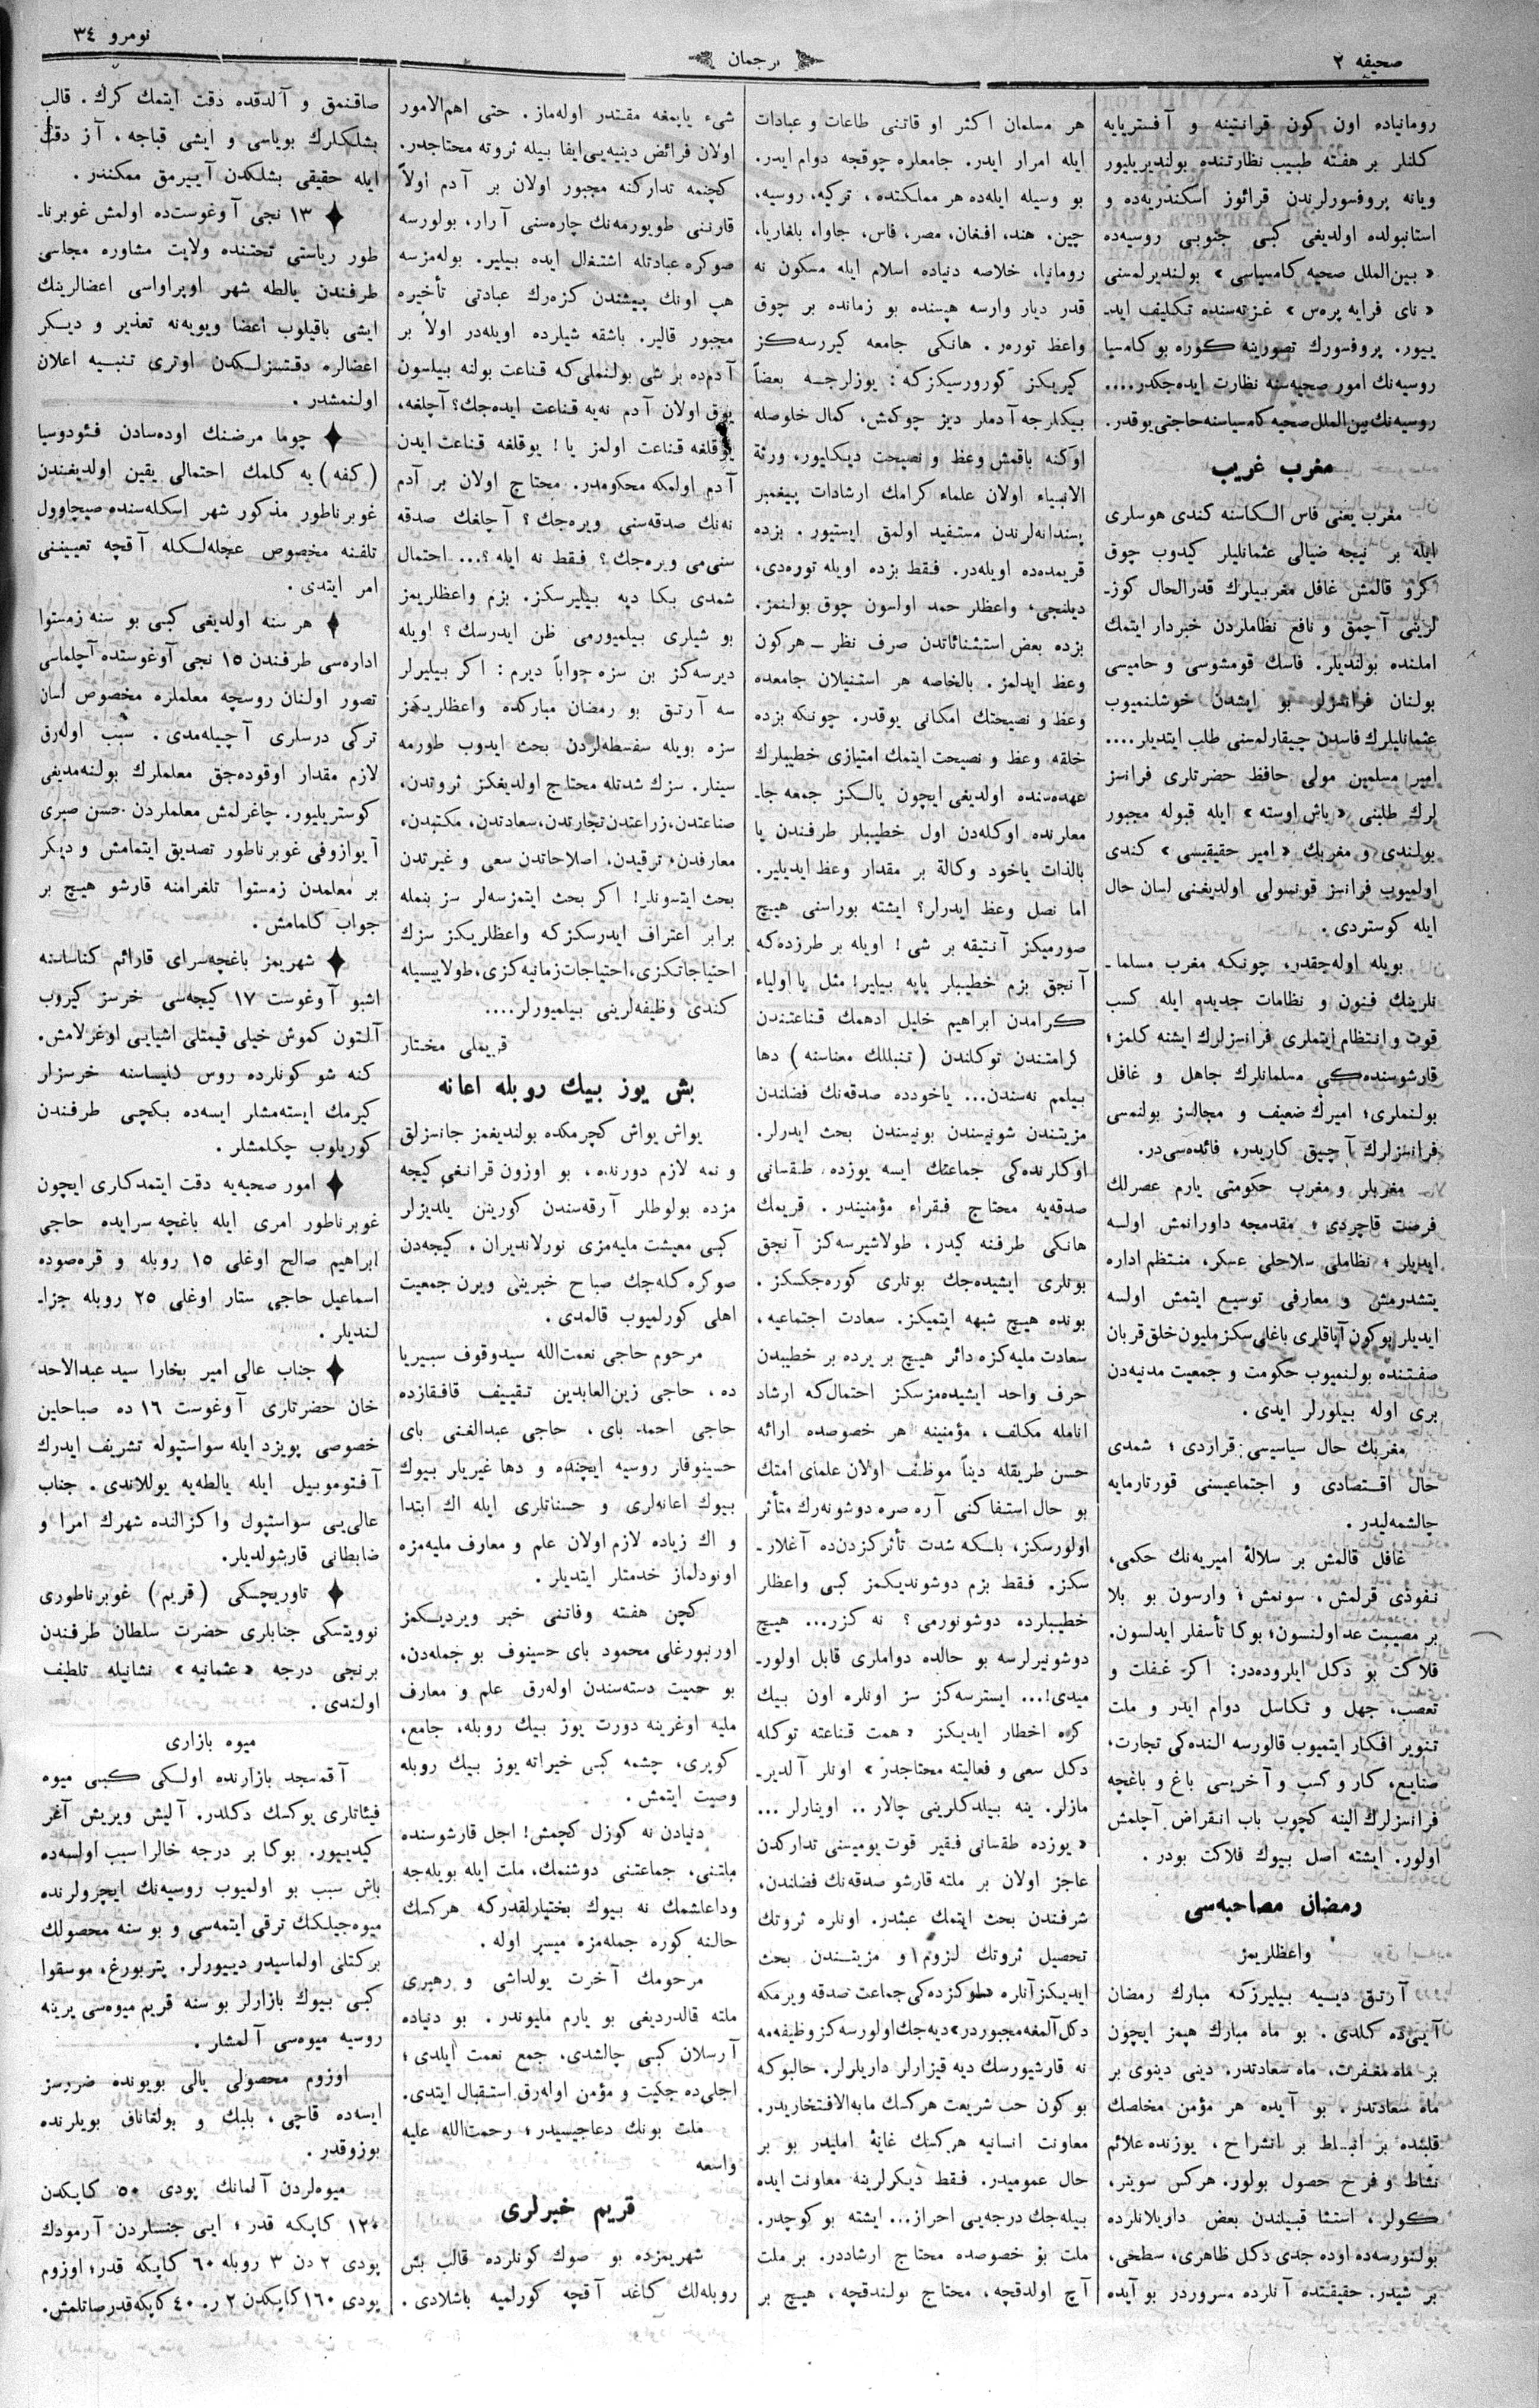 صحیفه ٢
ترجمان
نومرو ٣٤
رومانیاده اون كون قرانتینه و آفستریایه
كلنلر بر هفته طبیب نظارتنده بولندیریلیور
ویانه پروفسورلرندن قرائوز اسكندریه‌ده و
استانبولده اولدیغی كبی جنوبی روسیه‌ده
« بین‌الملل صحیه كامسیاسی » بولندیرلمسنی
« نای فرایه پره‌س » غزته‌سنده تكلیف ایدـ
ییور. پروفسورك تصورینه كوره بو كامسیا
روسیه‌نك امور صحیه‌سنه نظارت ایده‌جكدر....
روسیه‌نك بین‌الملل صحیه كامسیاسنه حاجتی یوقدر.
مغرب غریب
مغرب یعنی فاس الكاسنه كندی هوسلری
ایله بر نیجه ضیالی عثمانلیلر كیدوب چوق
كرو قالمش غافل مغربیلرك قدرالحال كوزـ
لرینی آچمق و نافع نظاملردن خبردار ایتمك
املنده بولندیلر. فاسك قومشوسی و حامیسی
بولنان فرانسزلر بو ایشدن خوشلنمیوب
عثمانلیلرك فاسدن چیقارلمسنی طلب ایتدیلر....
امیر مسلمین مولی حافظ حضرتلری فرانسز
لرك طلبنی « باش اوسته » ایله قبوله مجبور
بولندی و مغربك « امیر حقیقیسی » كندی
اولمیوب فرانسز قونسولی اولدیغنی لسان حال
ایله كوستردی.
بویله اوله‌جقدر، چونكه مغرب مسلماـ
نلرینك فنون و نظامات جدیده ایله كسب
قوت و انتظام ایتملری فرانسزلرك ایشنه كلمز؛
قارشوسنده‌كی مسلمانلرك جاهل و غافل
بولنملری؛ امیرك ضعیف و مجالسز بولنمسی
فرانسزلرك آچیق كاریدر، فائده‌سی‌در.
مغربلر و مغرب حكومتی یارم عصرلك
فرصت قاچردی؛ مقدمجه داورانمش اولسه
ایدیلر؛ نظاملی سلاحلی عسكر، منتظم اداره
یتشدرمش و معارفی توسیع ایتمش اولسه
ایدیلر بوكون آیاقلری باغلی سكز ملیون خلق قربان
صفتنده بولنمیوب حكومت و جمعیت مدنیه‌دن
بری اوله بیلورلر ایدی.
مغربك حال سیاسیسی قراردی؛ شمدی
حال اقتصادی و اجتماعیسنی قورتارمایه
چالشمه‌لیدر.
غافل قالمش بر سلالهٔ امیریه‌نك حكمی،
نفوذی قرلمش، سونمش؛ وارسون بو بلا
بر مصیبت عد اولنسون؛ بوكا تأسفلر ایدلسون.
فلاكت بو دكل ایلروده‌در: اكر غفلت و
تعصب، جهل و تكاسل دوام ایدر و ملت
تنویر افكار ایتمیوب قالورسه النده‌كی تجارت،
صنایع، كار و كسب و آخریسی باغ و باغچه
فرانسزلرك الینه كچوب باب انقراض آچلمش
اولور. ایشته اصل بیوك فلاكت بودر.
رمضان مصاحبه‌سی
واعظلریمز
آرتق دییه بیلیرزكه مبارك رمضان
آیی‌ده كلدی. بو ماه مبارك هپمز ایچون
بر ماه مغفرت، ماه سعادتدر. دینی دینوی بر
ماه سعادتدر. بو آیده هر مؤمن مخلصك
قلبنده بر انبساط بر انشراح، یوزنده علائم
نشاط و فرح حصول بولور. هركس سوینر،
كولر، استثنا قبیلندن بعض داریلانلرده
بولنورسه‌ده اوده جدی دكل ظاهری، سطحی،
بر شیدر. حقیقتده آنلرده مسروردر بو آیده
هر مسلمان اكثر اوقاتنی طاعات و عبادات
ایله امرار ایدر. جامعلره چوقجه دوام ایدر.
بو وسیله ایله‌ده هر مملكتده، تركیه، روسیه،
چین، هند، افغان، مصر، فاس، جاوا، بلغاریا،
رومانیا، خلاصه دنیاده اسلام ایله مسكون نه
قدر دیار وارسه هپسنده بو زمانده بر چوق
واعظ توره‌ر. هانكی جامعه كیررسه‌كز
كیریكز كورورسیكزكه: یوزلرجه بعضاً
بیكلرجه آدملر دیز چوكمش، كمال خلوصله
اوكنه باقمش وعظ و نصیحت دیكلیور، ورثة
الانبیاء اولان علماء كرامك ارشادات پیغمبر
پسندانه‌لرندن مستفید اولمق ایستیور. بزده
قریمده‌ده اویله‌در. فقط بزده اویله توره‌دی،
دیلنجی، واعظلر حمد اولسون چوق بولنمز.
بزده بعض استثناتدن صرف نظر ـ هركون
وعظ ایدلمز. بالخاصه هر استنیلان جامعده
وعظ و نصیحتك امكانی یوقدر. چونكه بزده
خلقه وعظ و نصیحت ایتمك امتیازی خطیبلرك
عهده‌سنده اولدیغی ایچون یالكز جمعه جاـ
معلرنده اوكله‌دن اول خطیبلر طرفندن یا
بالذات یاخود وكالة بر مقدار وعظ ایدیلیر.
اما نصل وعظ ایدرلر؟ ایشته بوراسنی هیچ
صورمیكز آنتیقه بر شی! اویله بر طرزده‌كه
آنجق بزم خطیبلر یاپه بیلیر! مثل یا اولیاء
كرامدن ابراهیم خلیل ادهمك قناعتندن
كرامتندن توكلندن ( تنبللك معناسنه ) دها
بیلمم نه‌سندن... یاخودده صدقه‌نك فضلندن
مزیتندن شونیسندن بونیسندن بحث ایدرلر.
اوكلرنده‌كی جماعتك ایسه یوزده، طقسانی
صدقه‌یه محتاج فقراء مؤمنیندر. قریمك
هانكی طرفنه كیدر، طولاشیرسه‌كز آنجق
بونلری ایشیده‌جك بونلری كوره‌جكسكز.
بونده هیچ شبهه ایتمیكز. سعادت اجتماعیه،
سعادت ملیه‌كزه دائر هیچ بر یرده بر خطیبدن
حرف واحد ایشیده‌مزسكز احتمال‌كه ارشاد
انامله مكلف، مؤمنینه هر خصوصده ارائه
حسن طریقله دیناً موظف اولان علمای امتك
بو حال استفاكنی آره صره دوشونه‌رك متأثر
اولورسكز، بلكه شدت تأثركزدن‌ده آغلارـ
سكز. فقط بزم دوشوندیكمز كبی واعظلر
خطیبلرده دوشونورمی؟ نه كزر... هیچ
دوشونیرلرسه بو حالده دواملری قابل اولورـ
میدی!... ایسترسه‌كز سز اونلره اون بیك
كره اخطار ایدیكز « همت قناعته توكله
دكل سعی و فعالیته محتاجدر » اونلر آلدیرـ
مازلر. ینه بیلدكلرینی چالار.. اوینارلر...
« یوزده طقسانی فقیر قوت یومیسنی تداركدن
عاجز اولان بر ملته قارشو صدقه‌نك فضلندن،
شرفندن بحث ایتمك عبثدر. اونلره ثروتك
تحصیل ثروتك لزوم و مزیتندن بحث
ایدیكز آنلره اوكزده‌كی جماعت صدقه ویرمكه
دكل آلمغه مجبوردر » دیه‌جك اولورسه‌كز وظیفه‌مه
نه قارشیورسك دیه قیزارلر داریلرلر. حالبوكه
بوكون حب شریعت هركسك مابه‌الافتخاریدر.
معاونت انسانیه هركسك غایهٔ املیدر بو بر
حال عمومیدر. فقط دیكرلرینه معاونت ایده
بیله‌جك درجه‌یی احراز... ایشته بو كوچدر.
ملت بو خصوصده محتاج ارشاددر. بر ملت
آچ اولدقچه، محتاج بولندقچه، هیچ بر
شیء یاپمغه مقتدر اوله‌ماز. حتی اهم‌الامور
اولان فرائض دینیه‌یی ایفا بیله ثروته محتاجدر.
كچنمه تداركنه مجبور اولان بر آدم اولاً
قارننی طویورمه‌نك چاره‌سنی آرار، بولورسه
صوكره عبادتله اشتغال ایده بیلیر. بوله‌مزسه
هپ اونك پیشندن كزه‌رك عبادتی تأخیره
مجبور قالیر. باشقه شیلرده اویله‌در اولا بر
آدم‌ده بر شی بولنملی‌كه قناعت بولنه بیلسون
یوق اولان آدم نه‌یه قناعت ایده‌جك؟ آچلغه،
یوقلغه قناعت اولمز یا! یوقلغه قناعت ایدن
آدم اولمكه محكومدر. محتاج اولان بر آدم
نه‌نك صدقه‌سنی ویره‌جك؟ آچلغك صدقه
سنی‌می ویره‌جك؟ فقط نه ایله؟... احتمال
شمدی بكا دیه بیلیرسكز. بزم واعظلریمز
بو شیلری بیلمیورمی ظن ایدرسك؟ اویله
دیرسه‌كز بن سزه جواباً دیرم: اكر بیلیرلر
سه آرتق بو رمضان مباركده واعظلریكز
سزه بویله سفسطه‌لردن بحث ایدوب طورمه
سینلر. سزك شدتله محتاج اولدیغكز ثروتدن،
صناعتدن، زراعتدن تجارتدن، سعادتدن، مكتبدن،
معارفدن، ترقیدن، اصلاحاتدن سعی و غیرتدن
بحث ایتسونلر! اكر بحث ایتمزسه‌لر سز بنمله
برابر اعتراف ایدرسكزكه واعظلریكز سزك
احتیاجاتكزی، احتیاجات زمانیه‌كزی، طولاییسیله
كندی وظیفه‌لرینی بیلمیورلر....
قریملی مختار
بش یوز بیك روبله اعانه
یواش یواش كچرمكده بولندیغمز جانسزلق
و نمه لازم دورنده، بو اوزون قرانغی كیجه
مزده بولوطلر آرقه‌سندن كورینن یلدیزلر
كبی معیشت ملیه‌مزی نورلاندیران، كیجه‌دن
صوكره كله‌جك صباح خبرینی ویرن جمعیت
اهلی كورلمیوب قالمدی.
مرحوم حاجی نعمت‌الله سیدوقوف سیبریا
ده، حاجی زین‌العابدین تقییف قافقازده
حاجی احمد بای، حاجی عبدالغنی بای
حسینوفلر روسیه ایچنده و دها غیریلر بیوك
بیوك اعانه‌لری و حسناتلری ایله اك ابتدا
و اك زیاده لازم اولان علم و معارف ملیه‌مزه
اونودلماز خدمتلر ایتدیلر.
كچن هفته وفاتنی خبر ویردیكمز
اورنبورغلی محمود بای حسینوف بو جمله‌دن،
بو حمیت دسته‌سندن اوله‌رق علم و معارف
ملیه اوغرینه دورت یوز بیك روبله، جامع،
كوپری، چشمه كبی خیراته یوز بیك روبله
وصیت ایتمش.
دنیادن نه كوزل كچمش! اجل قارشوسنده
ملتنی، جماعتنی دوشنمك، ملت ایله بویله‌جه
وداعلشمك نه بیوك بختیارلقدركه هركسك
حالنه كوره جمله‌مزه میسر اوله.
مرحومك آخرت یولداشی و رهبری
ملته قالدردیغی بو یارم ملیوندر. بو دنیاده
آرسلان كبی چالشدی، جمع نعمت ایلدی؛
اجلی‌ده چكیت و مؤمن اوله‌رق استقبال ایتدی.
ملت بونك دعاجیسیدر؛ رحمت‌الله علیه
واسعه
قریم خبرلری
شهریمزده بو صوك كونلرده قالب بش
روبله‌لك كاغد آقچه كورلمیه باشلادی.
صاقنمق و آلدقده دقت ایتمك كرك. قالب
بشلكلرك بویاسی و ایشی قباجه. آز دقت
ایله حقیقی بشلكدن آییرمق ممكندر.
✦ ١٣ نجی آوغوست‌ده اولمش غوبرناـ
طور ریاستی تحتنده ولایت مشاوره مجلسی
طرفندن یالطه شهر اوپراواسی اعضالرینك
ایشی باقیلوب اعضا ویویه‌نه تعذیر و دیكر
اعضالره دقتسزلكدن اوتری تنبیه اعلان
اولنمشدر.
✦ چوما مرضنك اوده‌سادن فئودوسیا
( كفه ) یه كلمك احتمالی یقین اولدیغندن
غوبرناطور مذكور شهر اسكله‌سنده صیچاوول
تلفنه مخصوص عجله‌لكله آقچه تعیینی
امر ایتدی.
✦ هر سنه اولدیغی كبی بو سنه زمستوا
اداره‌سی طرفندن ١٥ نجی آوغوستده آچلماسی
تصور اولنان روسچه معلملره مخصوص لسان
تركی درسلری آچیله‌مدی. سبب اوله‌رق
لازم مقدار اوقوده‌جق معلملرك بولنه‌مدیغی
كوستریلیور. چاغرلمش معلملردن حسن صبری
آیوازوفی غوبرناطور تصدیق ایتمامش و دیكر
بر معلمدن زمستوا تلغرامنه قارشو هیچ بر
جواب كلمامش.
✦ شهریمز باغچه‌سرای قارائم كناساسنه
اشبو آوغوست ١٧ كیجه‌سی خرسز كیروب
آلتون كموش خیلی قیمتلی اشیایی اوغرلامش.
كنه شو كونلرده روس كنیساسنه خرسزلر
كیرمك ایسته‌مشلر ایسه‌ده بكچی طرفندن
كوریلوب چكلمشلر.
✦ امور صحیه‌یه دقت ایتمدكلری ایچون
غوبرناطور امری ایله باغچه سرایده حاجی
ابراهیم صالح اوغلی ١٥ روبله و قره‌صوده
اسماعیل حاجی ستار اوغلی ٢٥ روبله جزاـ
لندیلر.
✦ جناب عالی امیر بخارا سید عبدالاحد
خان حضرتلری آوغوست ١٦ ده صباحلین
خصوصی پویزد ایله سواستپوله تشریف ایدرك
آفتوموبیل ایله یالطه‌یه یوللاندی. جناب
عالی‌یی سواستپول واكزالنده شهرك امرا و
ضابطانی قارشولدیلر.
✦ تاوریچسكی ( قریم ) غوبرناطوری
نوویتسكی جنابلری حضرت سلطان طرفندن
برنجی درجه « عثمانیه » نشانیله تلطیف
اولندی.
میوه بازاری
آقمسجد بازارنده اولكی كبی میوه
فیئاتلری یوكسك دكلدر. آلیش ویریش آغر
كیدییور. بوكا بر درجه خالرا سبب اولسه‌ده
باش سبب بو اولمیوب روسیه‌نك ایچرولرنده
میوه‌جیلكك ترقی ایتمه‌سی و بو سنه محصولك
بركتلی اولماسیدر دییورلر. پتربورغ، موسقوا
كبی بیوك بازارلر بو سنه قریم میوه‌سی یرینه
روسیه میوه‌سی آلمشلر.
اوزوم محصولی یالی بویونده ضررسز
ایسه‌ده قاچی، بلبك و بولغاناق بویلرنده
بوزوقدر.
میوه‌لردن آلمانك پودی ٥٠ كاپكدن
١٢٠ كاپكه قدر؛ ایی جنسلردن آرمودك
پودی ٢ دن ٣ روبله ٦٠ كاپكه قدر؛ اوزوم
پودی ١٦٠ كاپكدن ٢ ر. ٤٠ كاپكه قدر صاتلمش.